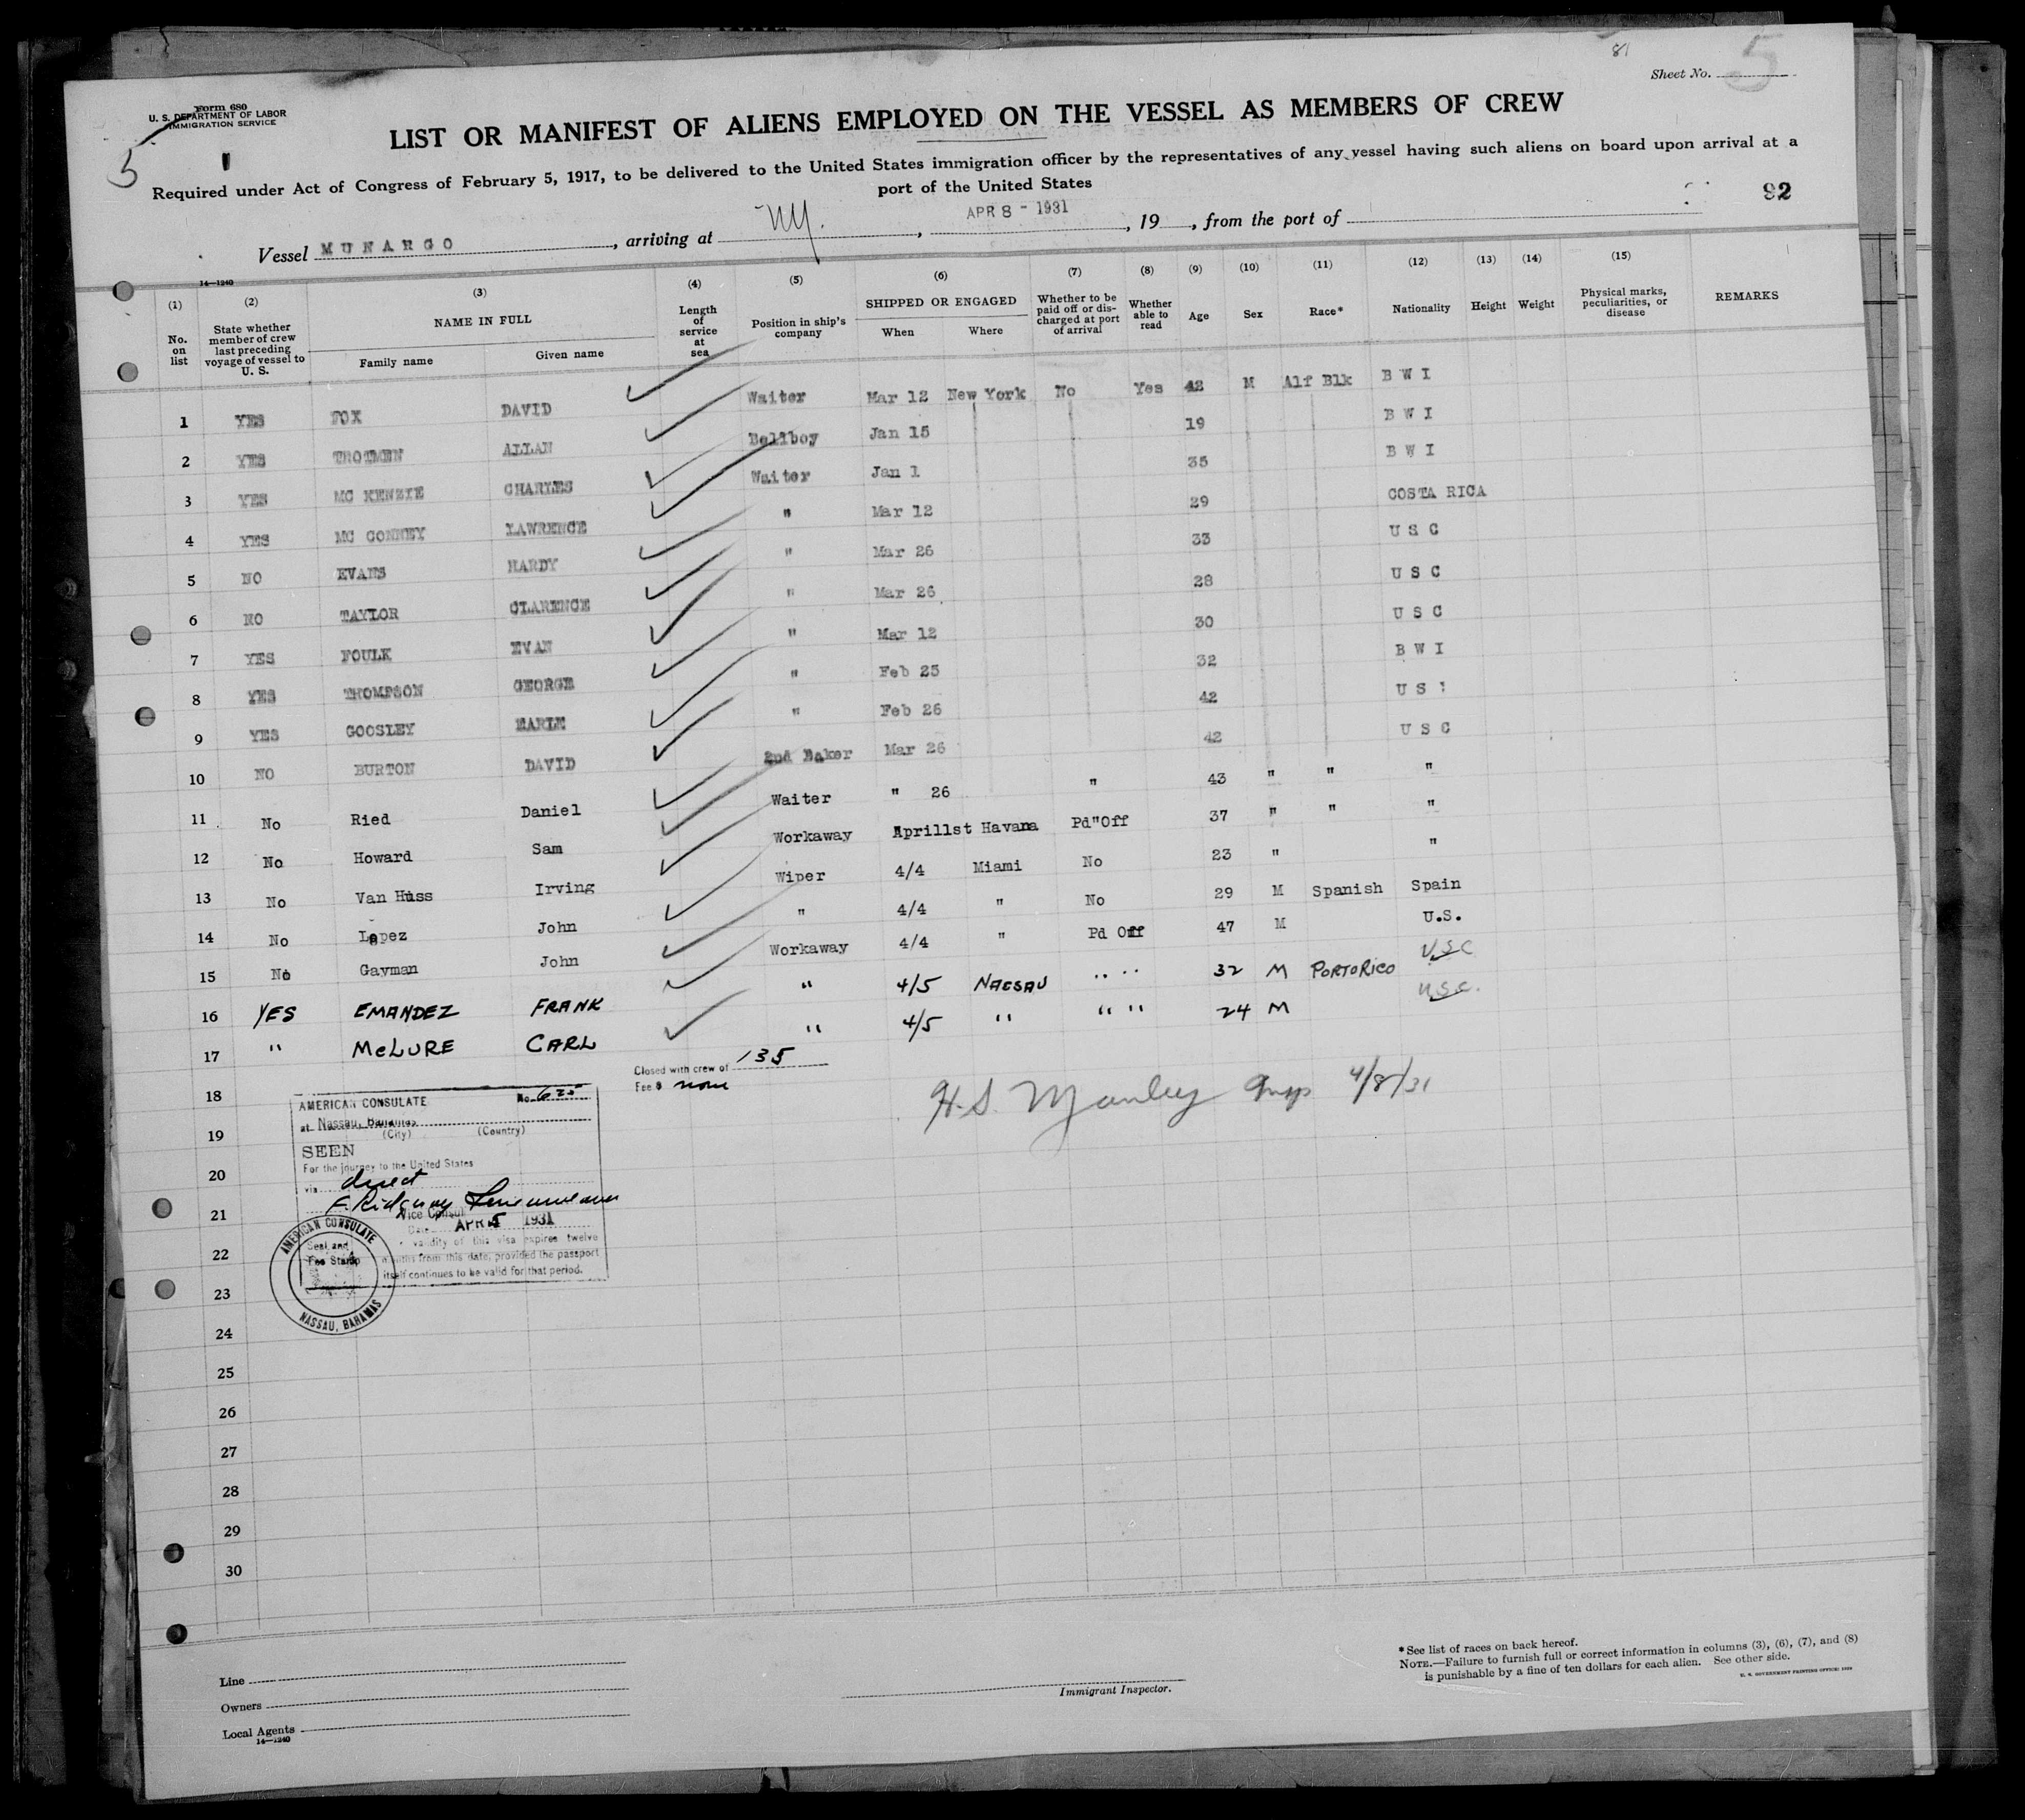 81
Sheet No. 5
Form 680
U. S. DEPARTMENT OF LABOR
IMMIGRATION SERVICE
5
LIST OR MANIFEST OF ALIENS EMPLOYED ON THE VESSEL AS MEMBERS OF CREW
Required under Act of Congress of February 5, 1917, to be delivered to the United States immigration officer by the representatives of any vessel having such aliens on board upon arrival at a
port of the United States
92
Vessel MUNARGO, arriving at NY., APR 8 - 1931, 19, from the port of
14—1240
(1) (2) (3) (4) (5) (6) (7) (8) (9) (10) (11) (12) (13) (14) (15)
No. on list State whether member of crew last preceding voyage of vessel to U. S. NAME IN FULL Family name Given name Length of service at sea Position in ship's company SHIPPED OR ENGAGED When Where Whether to be paid off or discharged at port of arrival Whether able to read Age Sex Race* Nationality Height Weight Physical marks, peculiarities, or disease REMARKS
1 YES FOX DAVID Waiter Mar 12 New York No Yes 42 M Alf Blk B W I
2 YES TROTMEN ALLAN Bellboy Jan 15 19 B W I
3 YES MC KENZIE CHARLES Waiter Jan 1 35 B W I
4 YES MC CONNEY LAWRENCE " Mar 12 29 COSTA RICA
5 NO EVANS HARDY " Mar 26 33 U S C
6 NO TAYLOR CLARENCE " Mar 26 28 U S C
7 YES FOULK EVAN " Mar 12 30 U S C
8 YES THOMPSON GEORGE " Feb 25 32 B W I
9 YES GOOSLEY EARLE " Feb 26 42 U S
10 NO BURTON DAVID 2nd Baker Mar 26 42 U S C
11 No Ried Daniel Waiter " 26 " 43 " " "
12 No Howard Sam Workaway April1st Havana Pd"Off 37 " " "
13 No Van Huss Irving Wiper 4/4 Miami No 23 " "
14 No Lopez John " 4/4 " No 29 M Spanish Spain
15 No Gayman John Workaway 4/4 " Pd Off 47 M U.S.
16 YES EMANDEZ FRANK " 4/5 NASSAU " " 32 M PORTO RICO USC
17 " McLURE CARL " 4/5 " " " 24 M U.S.C.
18
Closed with crew of 135
Fee $ none
H. S. Manley Insp 4/8/31
AMERICAN CONSULATE No. 625
at Nassau, Bahamas
(City) (Country)
19
SEEN
For the journey to the United States
20
via direct
F Ridgway
21
Vice Consul
Date APR 5 1931
validity of this visa expires twelve
22
months from this date, provided the passport
itself continues to be valid for that period.
AMERICAN CONSULATE
Seal and
Fee Stamp
NASSAU, BAHAMAS
23
24
25
26
27
28
29
30
Line
Owners
Local Agents
14—1240
Immigrant Inspector.
*See list of races on back hereof.
NOTE.—Failure to furnish full or correct information in columns (3), (6), (7), and (8)
is punishable by a fine of ten dollars for each alien. See other side.
U. S. GOVERNMENT PRINTING OFFICE: